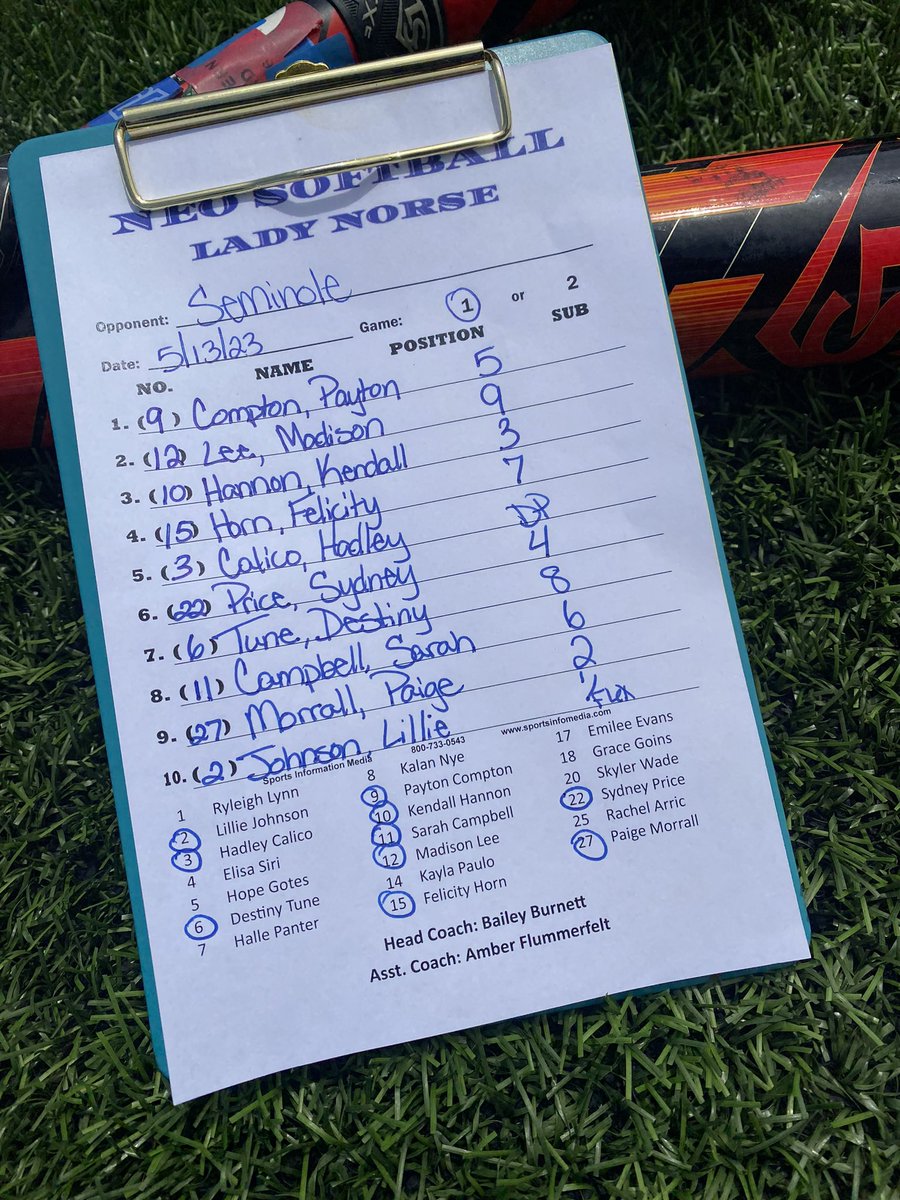 NEO SOFTBALL
LADY NORSE
Opponent: Seminole
Date: 5/13/23 Game: 1 or 2
NO. NAME POSITION SUB
1. (9) Compton, Payton 5
2. (12) Lee, Madison 9
3. (10) Hannon, Kendall 3
4. (15) Horn, Felicity 7
5. (3) Calico, Hadley DP
6. (22) Price, Sydney 4
7. (6) Tune, Destiny 8
8. (11) Campbell, Sarah 6
9. (27) Morrall, Paige 2
10. (2) Johnson, Lillie 1
Sports Information Media 800-733-0543 www.sportsinfomedia.com
1 Ryleigh Lynn
2 Lillie Johnson
3 Hadley Calico
4 Elisa Siri
5 Hope Gotes
6 Destiny Tune
7 Halle Panter
8 Kalan Nye
9 Payton Compton
10 Kendall Hannon
11 Sarah Campbell
12 Madison Lee
14 Kayla Paulo
15 Felicity Horn
17 Emilee Evans
18 Grace Goins
20 Skyler Wade
22 Sydney Price
25 Rachel Arric
27 Paige Morrall
Head Coach: Bailey Burnett
Asst. Coach: Amber Flummerfelt